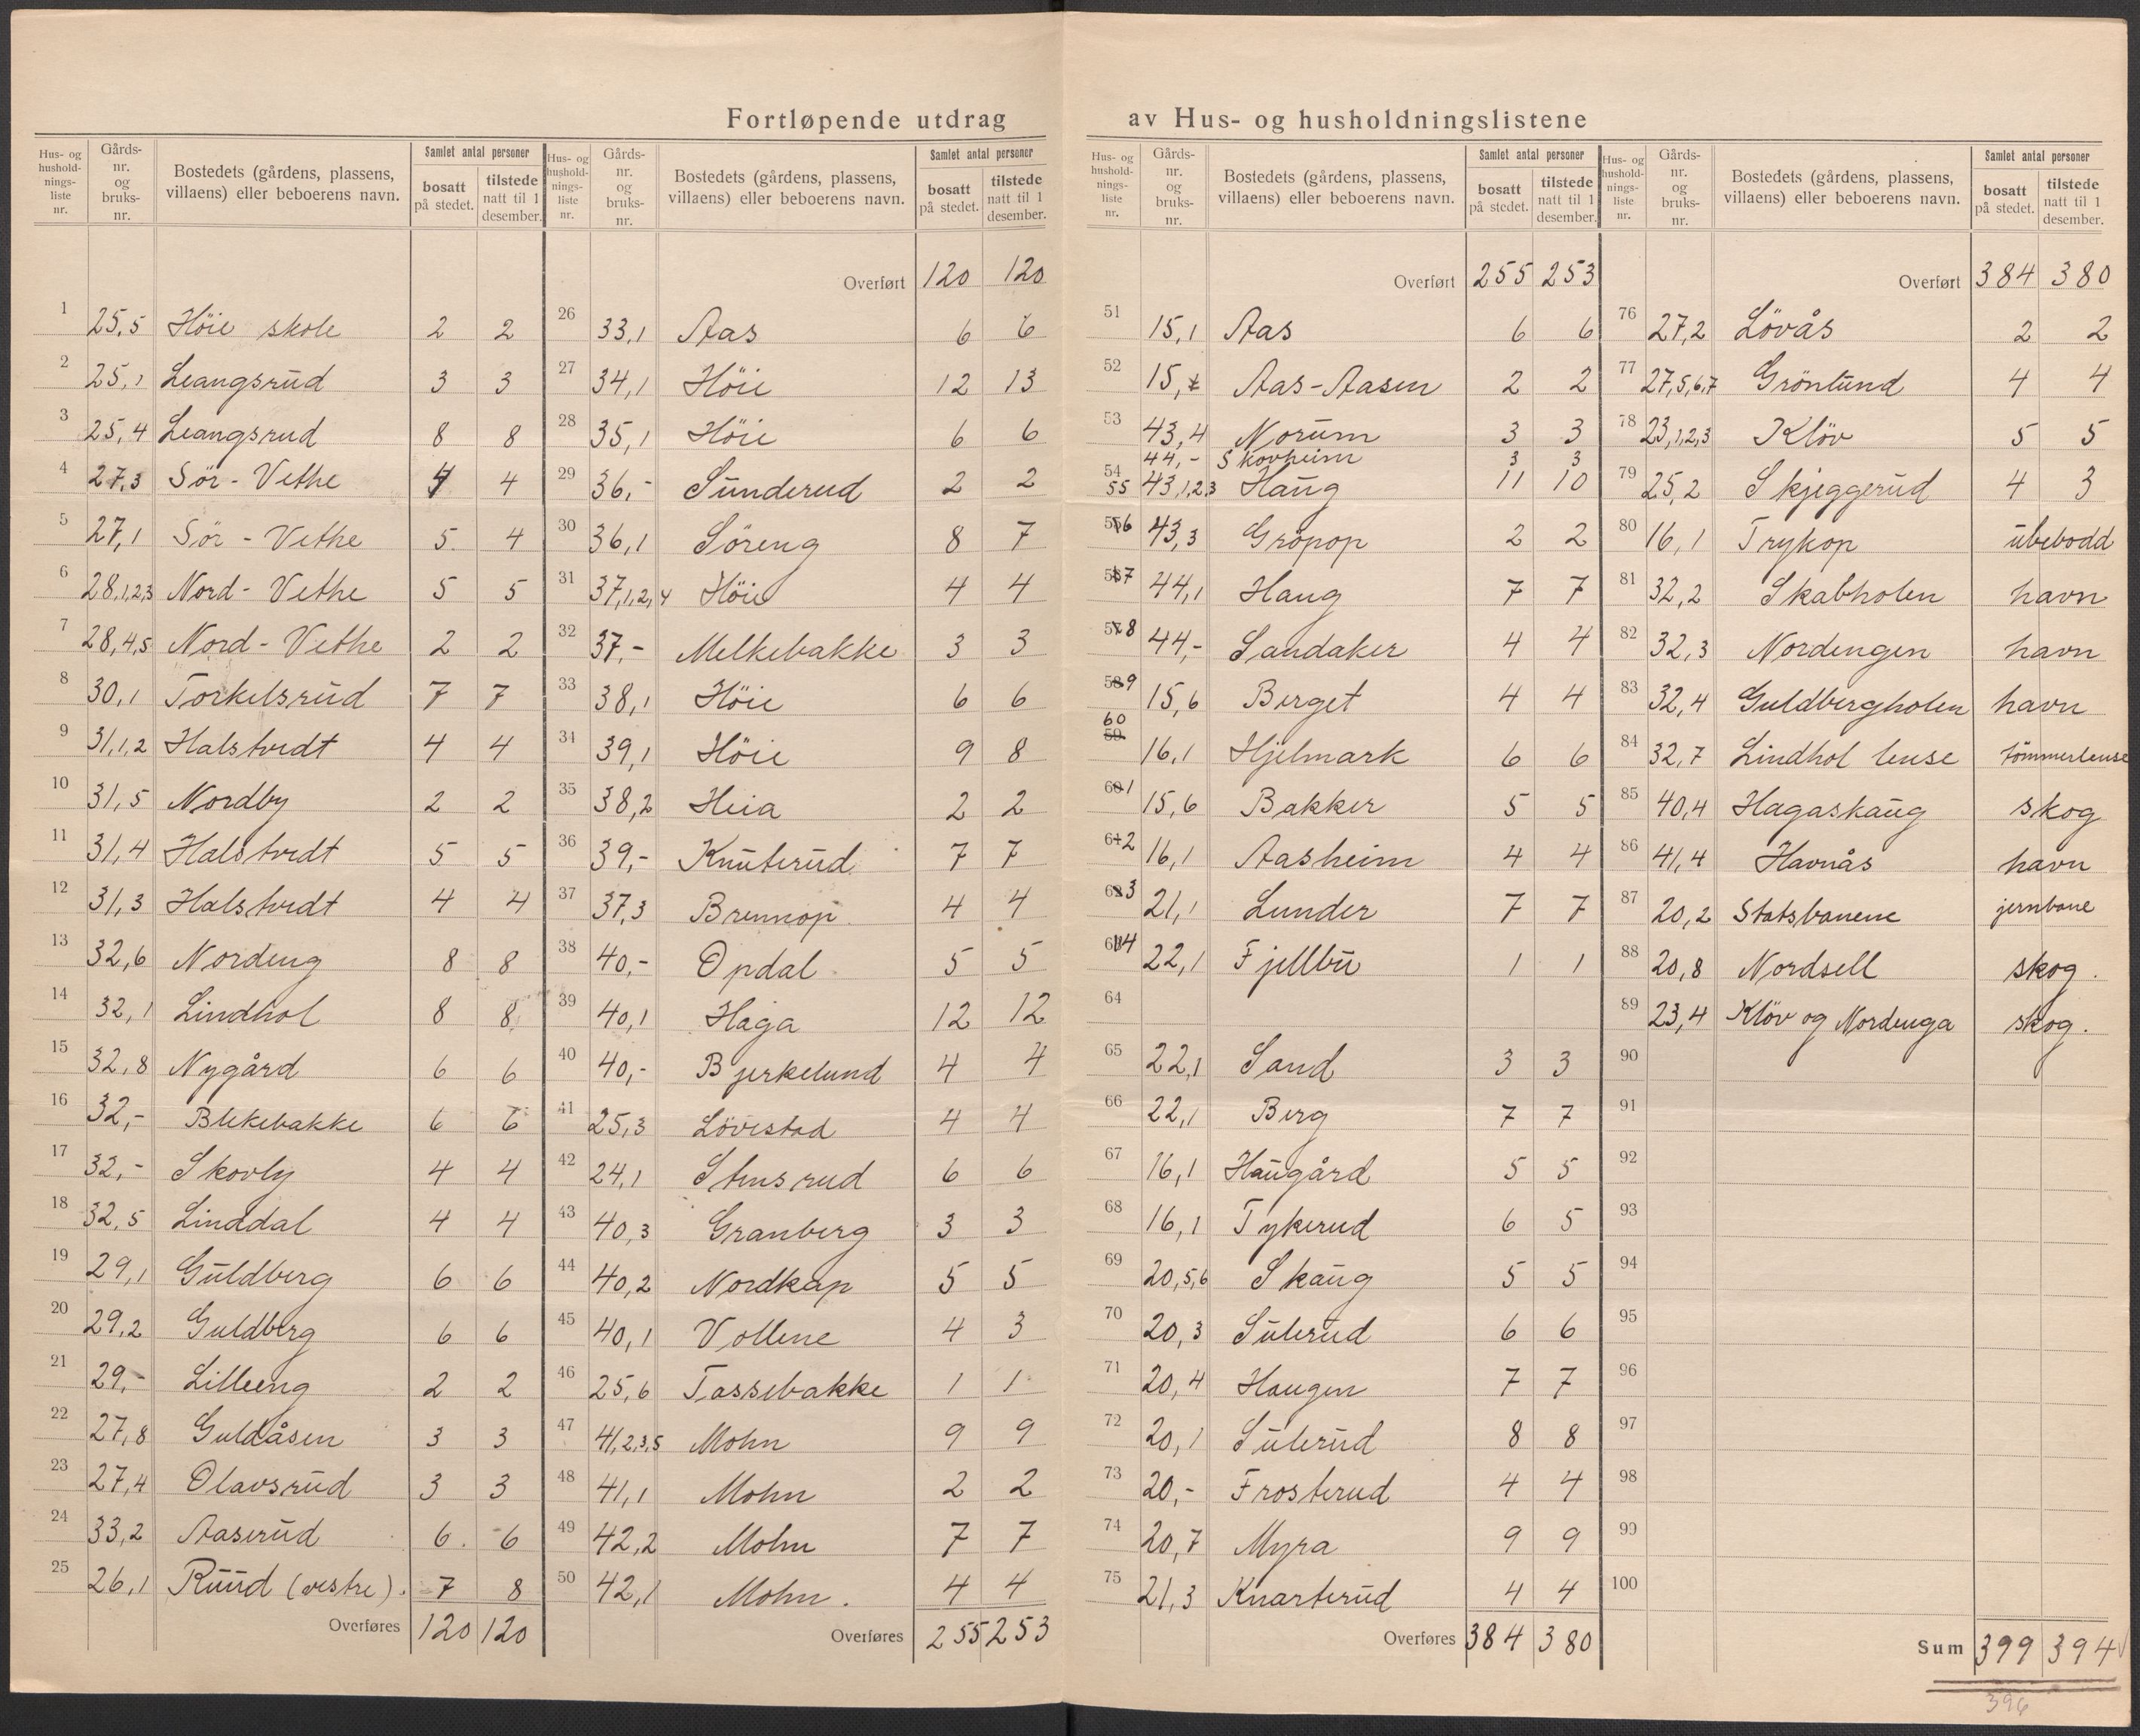 Fortløpende utdrag av Hus- og husholdningslistene
Hus- og hushold-nings-liste nr. | Gårds-nr. og bruks-nr. | Bostedets (gårdens, plassens, villaens) eller beboerens navn. | Samlet antal personer | bosatt på stedet. | tilstede natt til 1 desember.
1 25,5 Höie skole 2 2
2 25,1 Leangsrud 3 3
3 25,4 Leangsrud 8 8
4 27,3 Sör-Vethe 4 4
5 27,1 Sör-Vethe 5 4
6 28,1,2,3 Nord-Vethe 5 5
7 28,4,5 Nord-Vethe 2 2
8 30,1 Torkelsrud 7 7
9 31,1,2 Halstvedt 4 4
10 31,5 Nordby 2 2
11 31,4 Halstvedt 5 5
12 31,3 Halstvedt 4 4
13 32,6 Nordeng 8 8
14 32,1 Lindhol 8 8
15 32,8 Nygård 6 6
16 32,- Blekebakke 6 6
17 32,- Skovly 4 4
18 32,5 Linddal 4 4
19 29,1 Guldberg 6 6
20 29,2 Guldberg 6 6
21 29,- Lilleeng 2 2
22 27,8 Guldåsen 3 3
23 27,4 Olavsrud 3 3
24 33,2 Aaserud 6 6
25 26,1 Ruud (vestre). 7 8
Overføres 120 120
Hus- og hushold-nings-liste nr. | Gårds-nr. og bruks-nr. | Bostedets (gårdens, plassens, villaens) eller beboerens navn. | Samlet antal personer | bosatt på stedet. | tilstede natt til 1 desember.
Overført 120 120
26 33,1 Aas 6 6
27 34,1 Höie 12 13
28 35,1 Höie 6 6
29 36,- Sunderud 2 2
30 36,1 Söreng 8 7
31 37,1,2,4 Höie 4 4
32 37,- Melkebakke 3 3
33 38,1 Höie 6 6
34 39,1 Höie 9 8
35 38,2 Heia 2 2
36 39,- Knuterud 7 7
37 37,3 Brennop 4 4
38 40,- Opdal 5 5
39 40,1 Haga 12 12
40 40,- Bjerkelund 4 4
41 25,3 Lövestad 4 4
42 24,1 Stensrud 6 6
43 40,3 Granberg 3 3
44 40,2 Nordkap 5 5
45 40,1 Vollene 4 3
46 25,6 Tassebakke 1 1
47 41,2,3,5 Mohn 9 9
48 41,1 Mohn 2 2
49 42,2 Mohn 7 7
50 42,1 Mohn. 4 4
Overføres 255 253
Hus- og hushold-nings-liste nr. | Gårds-nr. og bruks-nr. | Bostedets (gårdens, plassens, villaens) eller beboerens navn. | Samlet antal personer | bosatt på stedet. | tilstede natt til 1 desember.
Overført 255 253
51 15,1 Aas 6 6
52 15, Aas-Aasen 2 2
53 43,4 Norum 3 3
54 44,- Skovheim 3 3
55 43,1,2,3 Haug 11 10
56 43,3 Gropop 2 2
57 44,1 Haug 7 7
58 44,- Sandaker 4 4
59 15,6 Berget 4 4
60 16,1 Hjelmark 6 6
61 15,6 Bakker 5 5
62 16,1 Aasheim 4 4
63 21,1 Lunder 7 7
64 22,1 Fjellbu 1 1
64
65 22,1 Sand 3 3
66 22,1 Berg 7 7
67 16,1 Haugård 5 5
68 16,1 Tykerud 6 5
69 20,5,6 Skaug 5 5
70 20,3 Sulerud 6 6
71 20,4 Haugen 7 7
72 20,1 Sulerud 8 8
73 20,- Frosterud 4 4
74 20,7 Myra 9 9
75 21,3 Knarterud 4 4
Overføres 384 380
Hus- og hushold-nings-liste nr. | Gårds-nr. og bruks-nr. | Bostedets (gårdens, plassens, villaens) eller beboerens navn. | Samlet antal personer | bosatt på stedet. | tilstede natt til 1 desember.
Overført 384 380
76 27,2 Lövås 2 2
77 27,5,6,7 Grönlund 4 4
78 23,1,2,3 Klöv 5 5
79 25,2 Skjeggerud 4 3
80 16,1 Trykop ubebodd
81 32,2 Skabholen havn
82 32,3 Nordengen havn
83 32,4 Guldbergholen havn
84 32,7 Lindhol lense tömmerlense
85 40,4 Hagaskaug skog
86 41,4 Havnås havn
87 20,2 Statsbanene jernbane
88 20,8 Nordsell skog.
89 23,4 Klöv og Nordenga skog.
90
91
92
93
94
95
96
97
98
99
100
Sum 399 394
396